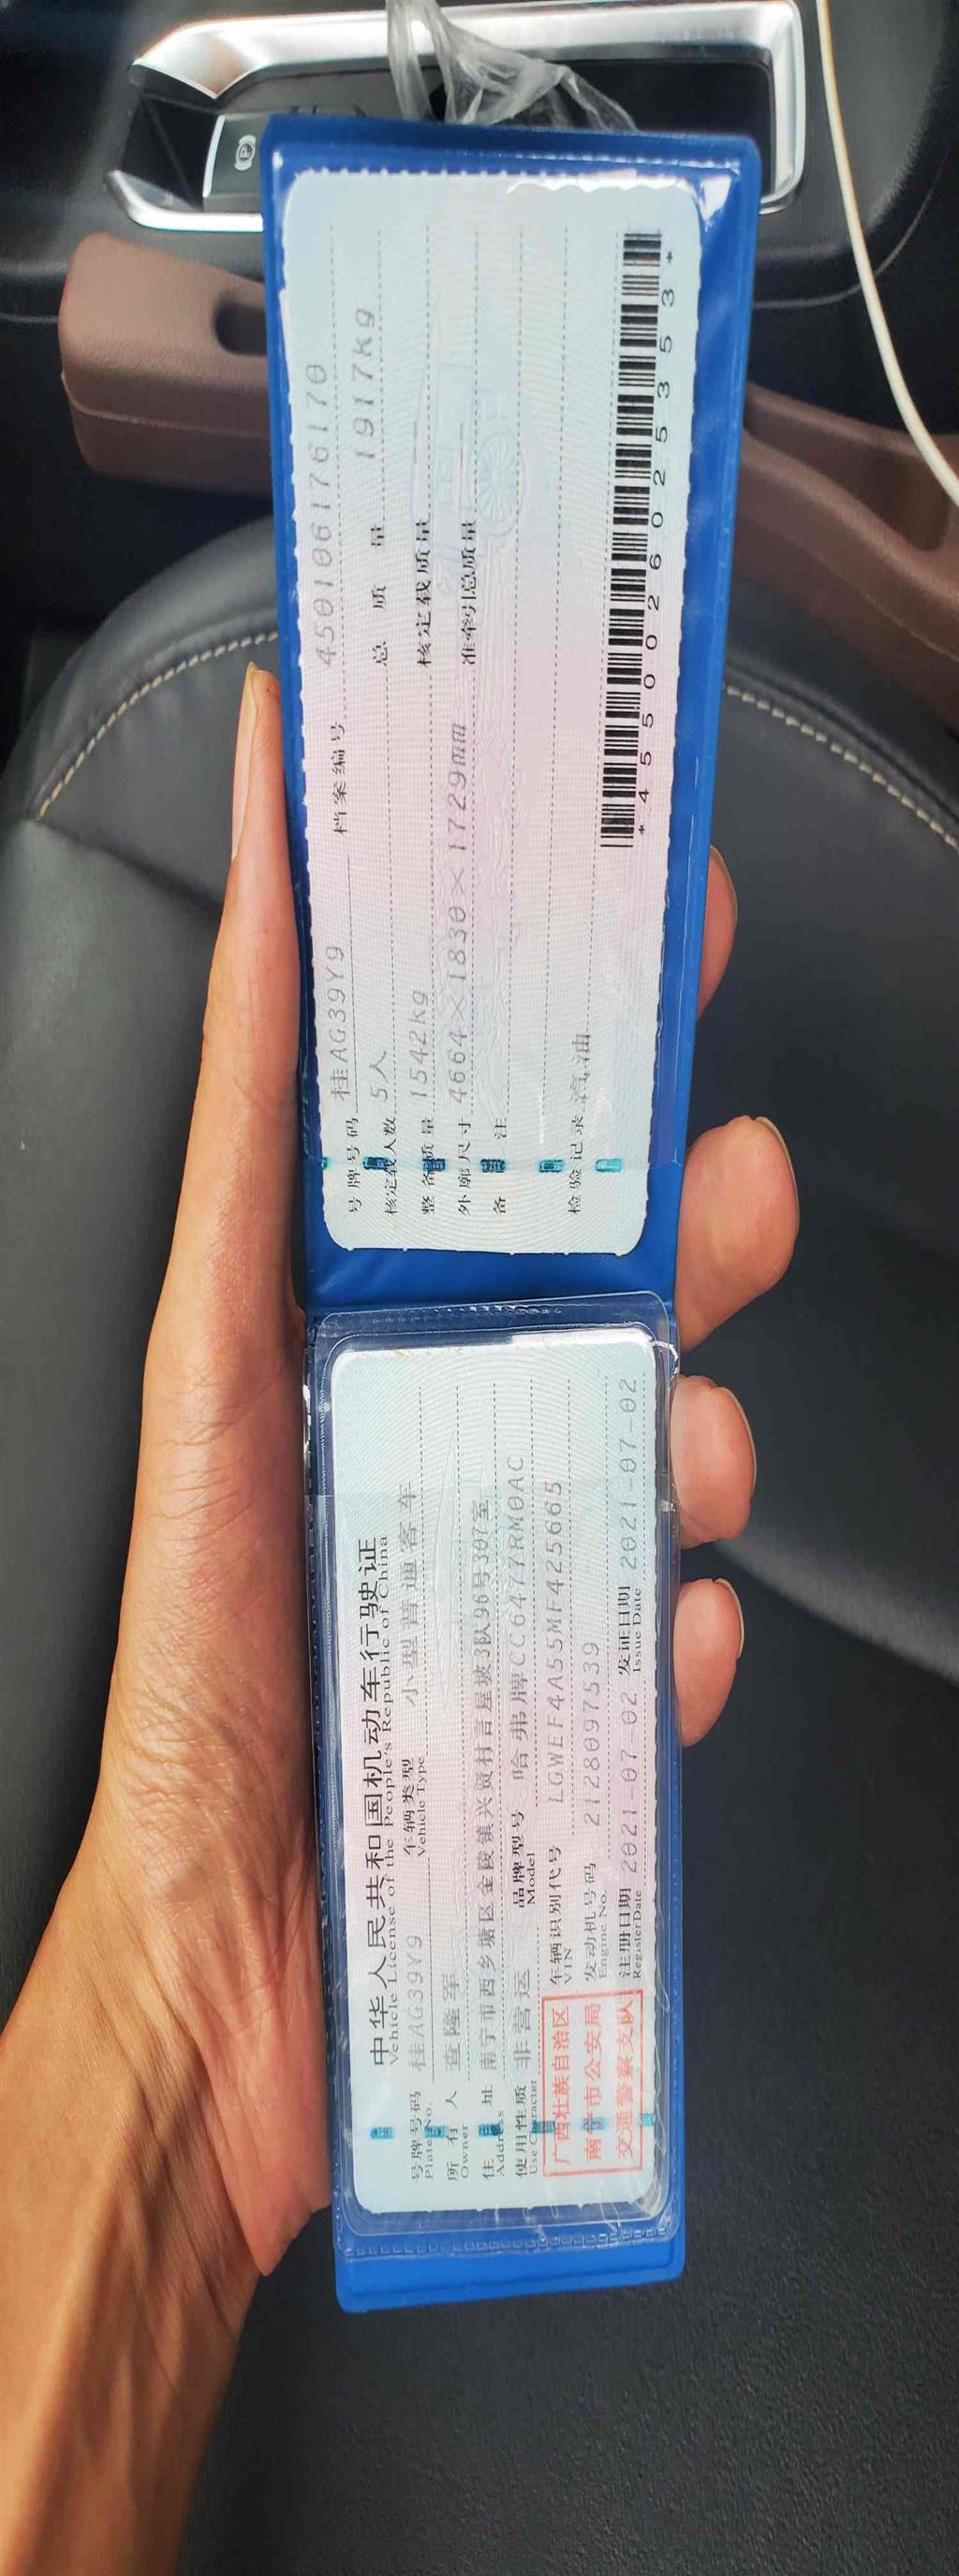 中华人民共和国机动车行驶证
Vehicle License of the People's Republic of China
号牌号码 桂AG39Y9 车辆类型 小型普通客车
Plate No. Vehicle Type
所有人 查隆军
Owner
住址 南宁市西乡塘区金陵镇兴贤村言屋坡3队96号307室
Address
使用性质 非营运 品牌型号 哈弗牌CC6477RM0AC
Use Character Model
广西壮族自治区
南宁市公安局
交通警察支队
车辆识别代号 LGWEF4A55MF425665
VIN
发动机号码 2128097539
Engine No.
注册日期 2021-07-02 发证日期 2021-07-02
Register Date Issue Date
号牌号码 桂AG39Y9 档案编号 450106176170
核定载人数 5人 总质量 1917kg
整备质量 1542kg 核定载质量
外廓尺寸 4664×1830×1729mm 准牵引总质量
备注
检验记录 汽油
*4550026025353*